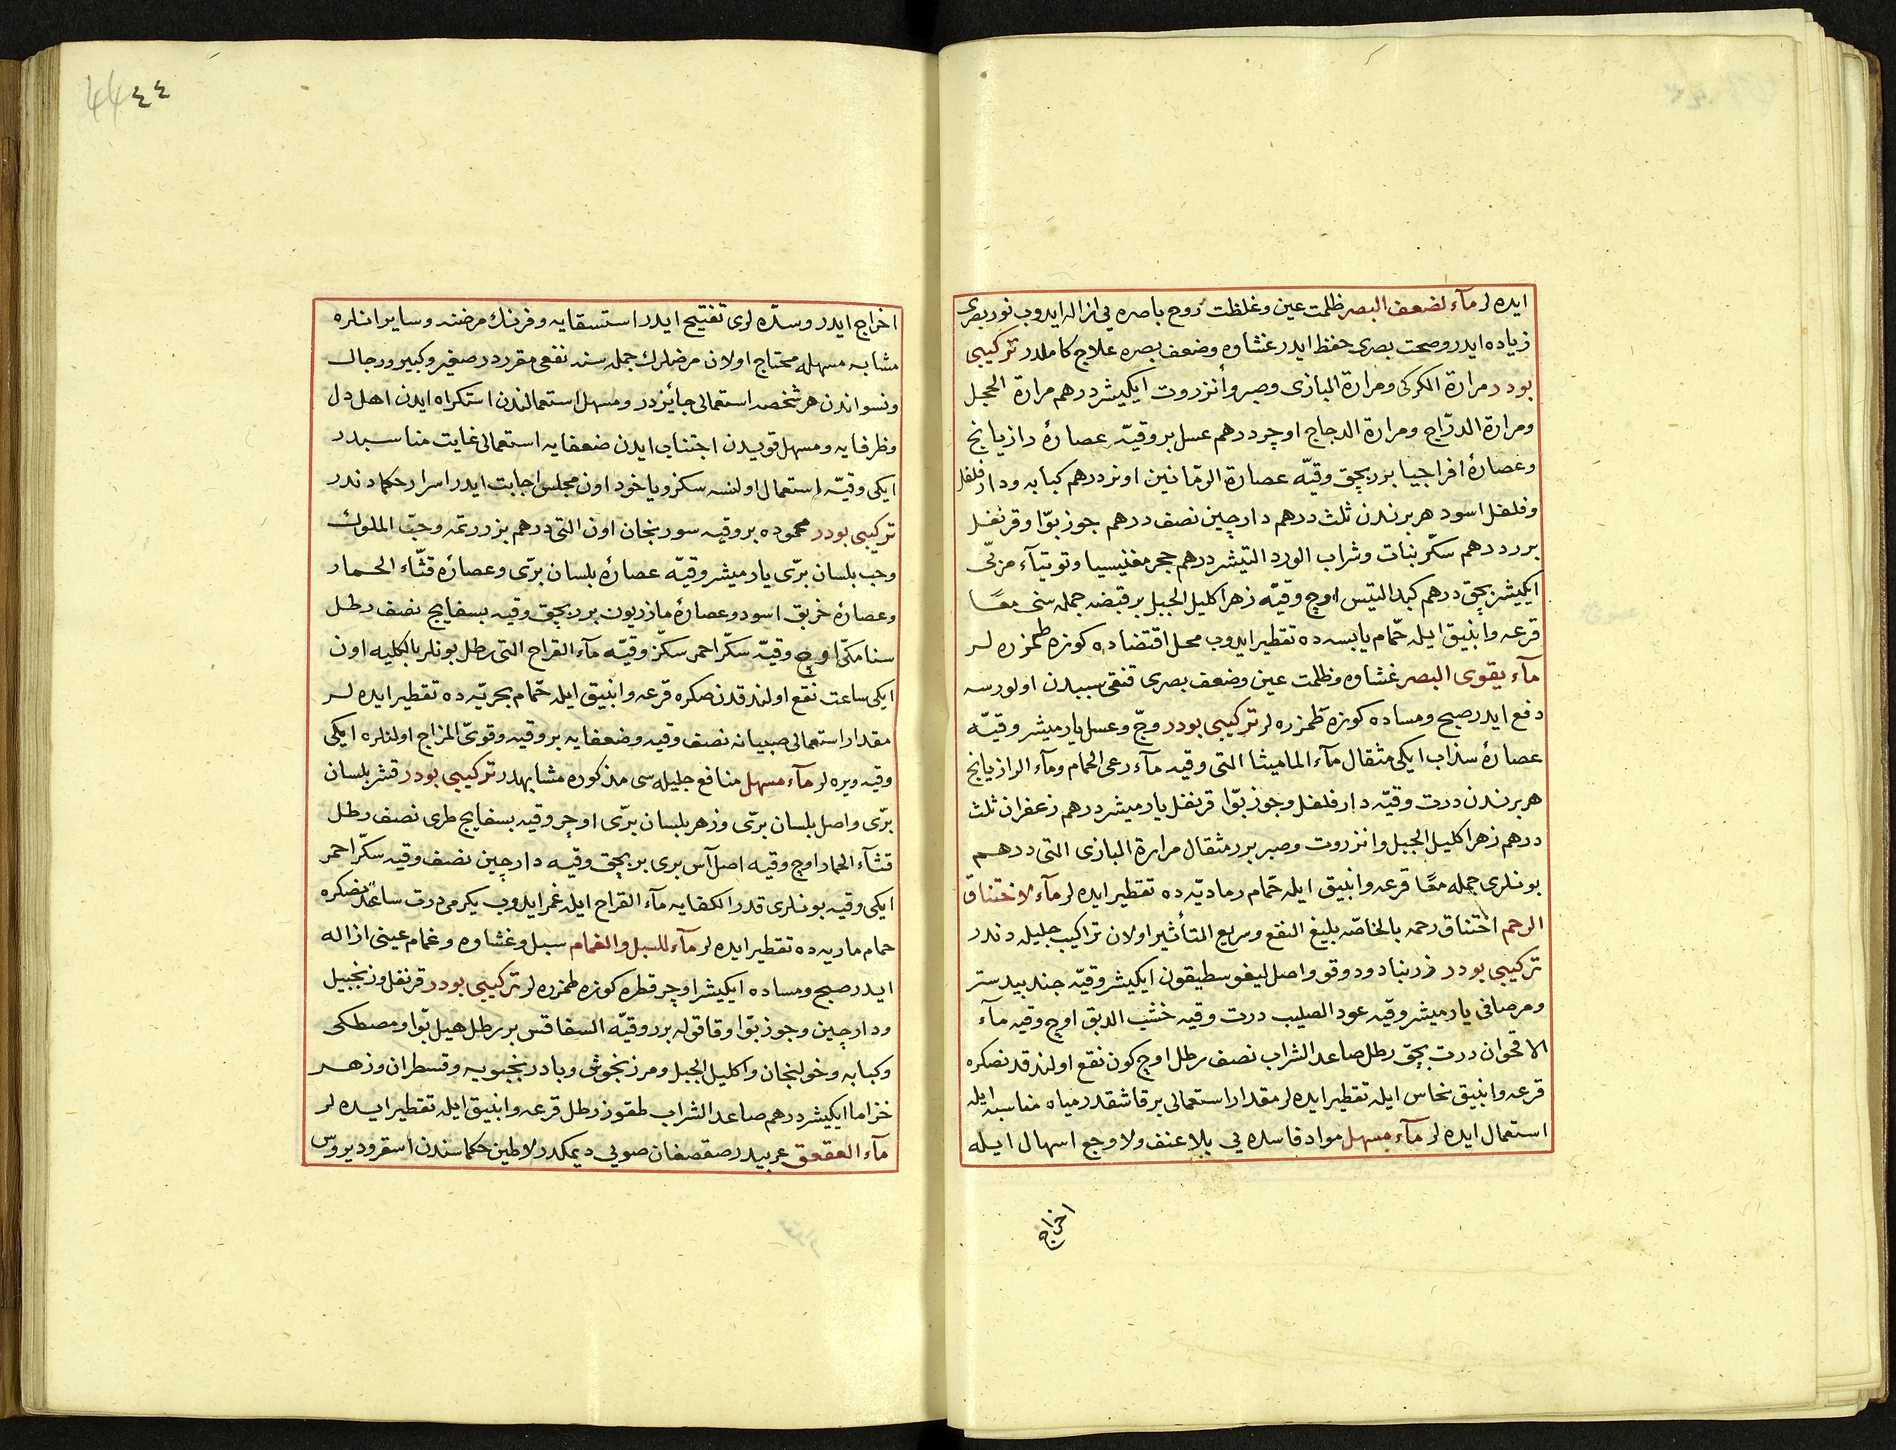 ايده لر مآء لضعف البصر ظلمت عين وغلظت روح باصره يي ازاله ايدوب نور بصرى
زياده ايدر وصحت بصرى حفظ ايدر غشاوه وضعف بصره علاج كاملدر تركيبى
بودر مرارة الكركى ومرارة البازى وصبر وأنزروت ايكيشر درهم مرارة الحجل
ومرارة الدرّاج ومرارة الدجاج اوچر درهم عسل بر وقيّه عصارهٔ رازيانج
وعصارهٔ افراجيا برر بچق وقيّه عصارة الرمّانين اونر درهم كبابه ودار فلفل
وفلفل اسود هر برندن ثلث درهم دارچين نصف درهم جوز بوّا وقرنفل
برر درهم سكّر نبات وشراب الورد التيشر درهم حجر مغنيسيا وتوتيآء مربّى
ايكيشر بچق درهم كبد التيس اوچ وقيّه زهر اكليل الجبل بر قبضه جمله سنى معًا
قرعه وانبيق ايله حمّام يابسه ده تقطير ايدوب محل اقتضاده كوزه طمزره لر
مآء يقوى البصر غشاوه وظلمت عين وضعف بصرى قنغى سببدن اولورسه
دفع ايدر صبح ومساده كوزه طمزره لر تركيبى بودر وجّ وعسل يارميشر وقيّه
عصارهٔ سذاب ايكى مثقال مآء الماميثا التى وقيه مآء رعى الحمام ومآء الرازيانج
هر برندن درت وقيّه دار فلفل وجوز بوّا قرنفل يارميشر درهم زعفران ثلث
درهم زهر اكليل الجبل وانزروت وصبر برر مثقال مرارة البازى التى درهم
بونلرى جمله معًا قرعه وانبيق ايله حمّام رماديّه ده تقطير ايده لر مآء لاختناق
الرحم اختناق رحمه بالخاصّه بليغ النفع وسريع التأثير اولان تراكيب جليله دندر
تركيبى بودر زرنباد ودوقو واصل ليغوسطيقون ايكيشر وقيّه جندبيدستر
ومر صافى يارميشر وقيه عود الصليب درت وقيه خشب الدبق اوچ وقيه مآء
الاقحوان درت بچق رطل صاعد الشراب نصف رطل اوچ كون نقع اولندقدنصكره
قرعه وانبيق نحاس ايله تقطير ايده لر مقدار استعمالى بر قاشقدر مياه مناسبه ايله
استعمال ايده لر مآء مسهل مواد فاسده يي بلا عنف ولا وجع اسهال ايله
اخراج
٤٤ 44
اخراج ايدر وسدّه لرى تفتيح ايدر استسقايه وفرنك مرضنه وساير انلره
مشابه مسهله محتاج اولان مرضلرك جمله سنه نفعى مقرردر صغير وكبير ورجال
ونسواندن هر شخصه استعمالى جائزدر ومسهل استعمالندن استكراه ايدن اهل دل
وظرفايه ومسهل قويدن اجتناب ايدن ضعفايه استعمالى غايت مناسبدر
ايكى وقيّه استعمال اولنسه سكز ويا خود اون مجلس اجابت ايدر اسرار حكمادندر
تركيبى بودر محموده بر وقيه سورنجان اون التى درهم بزر رتمه وحبّ الملوك
وحب بلسان برّى يارميشر وقيّه عصارهٔ بلسان برّى وعصارهٔ قثّاء الحمار
وعصارهٔ خربق اسود وعصارهٔ مازريون برر بچق وقيه بسفايج نصف رطل
سنا مكّى اوچ وقيّه سكّر احمر سكز وقيّه مآء القراح التى رطل بونلر بالكليه اون
ايكى ساعت نقع اولندقدنصكره قرعه وانبيق ايله حمّام بحريّه ده تقطير ايده لر
مقدار استعمالى صبيانه نصف وقيه وضعفايه بر وقيه وقوىّ المزاج اولنلره ايكى
وقيه ويره لر مآء مسهل منافع جليله سى مذكوره مشابهدر تركيبى بودر قشر بلسان
برّى واصل بلسان برّى وزهر بلسان برّى اوچر وقيه بسفايج طرى نصف رطل
قثآء الحمار اوچ وقيه اصل آس برى بر بچق وقيه دارچين نصف وقيه سكّر احمر
ايكى وقيه بونلرى قدر الكفايه مآء القراح ايله غمر ايدوب يكرمى درت ساعتدنصكره
حمام ماريه ده تقطير ايده لر مآء للسبل والغمام سبل وغشاوه وغمام عينى ازاله
ايدر صبح ومساده ايكيشر اوچر قطره كوزه طمزره لر تركيبى بودر قرنفل وزنجبيل
ودارچين وجوز بوّا وقاقوله برر وقيّه السفاقس بر رطل هيل بوّا ومصطكى
وكبابه وخولنجان واكليل الجبل ومرزنجوش وبادرنجبويه وقسطران وزهر
خزاما ايكيشر درهم صاعد الشراب طقوز رطل قرعه وانبيق ايله تقطير ايده لر
مآء العقعق عربيدر صقصغان صويى ديمكدر لاطين حكماسندن اسقروديروس